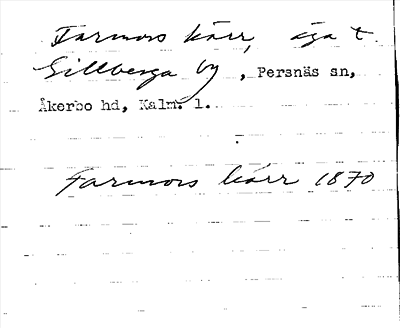 Farmors kärr, äga t
Gillberga by, Persnäs sn,
Åkerbo hd, Kalm. l.
Farmors kärr 1870